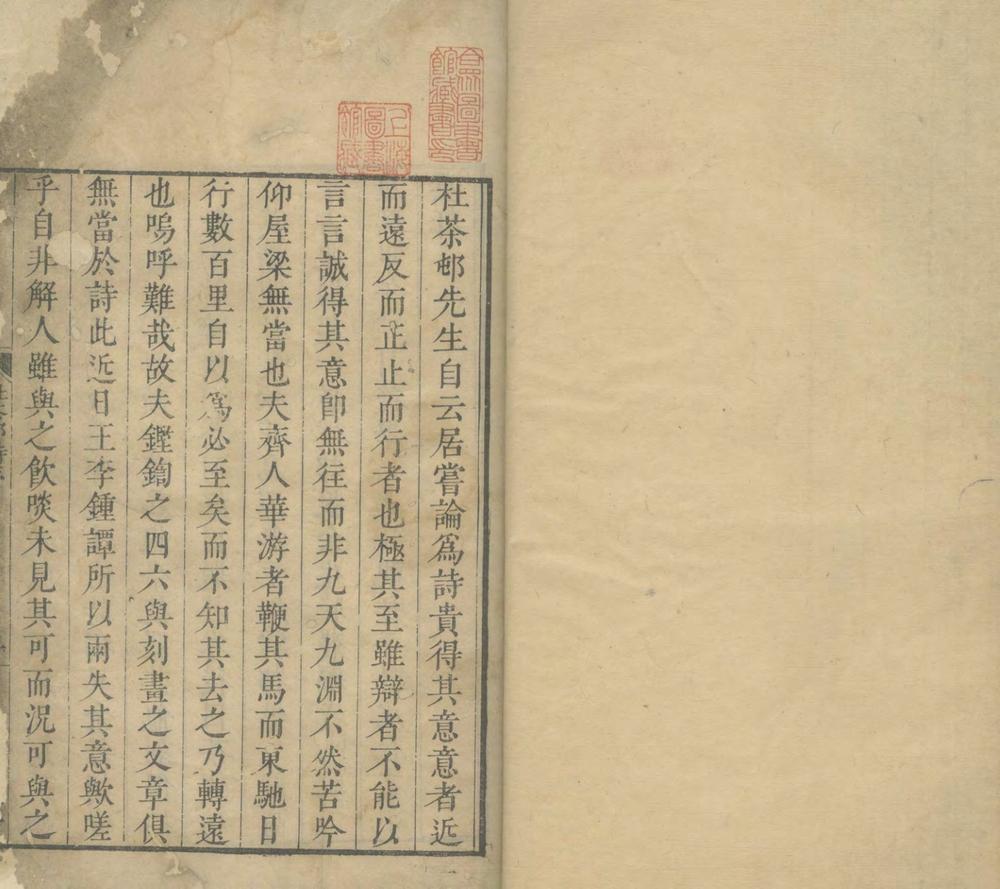 合眾圖書
館藏書印
上海
圖書
館藏
杜茶邨先生自云居嘗論爲詩貴得其意意者近
而遠反而正止而行者也極其至雖辯者不能以
言言誠得其意卽無往而非九天九淵不然苦吟
仰屋梁無當也夫齊人華游者鞭其馬而東馳日
行數百里自以爲必至矣而不知其去之乃轉遠
也嗚呼難哉故夫鏗鍧之四六與刻畫之文章俱
無當於詩此近日王李鍾譚所以兩失其意歟嗟
乎自非解人雖與之飲啖未見其可而況可與之